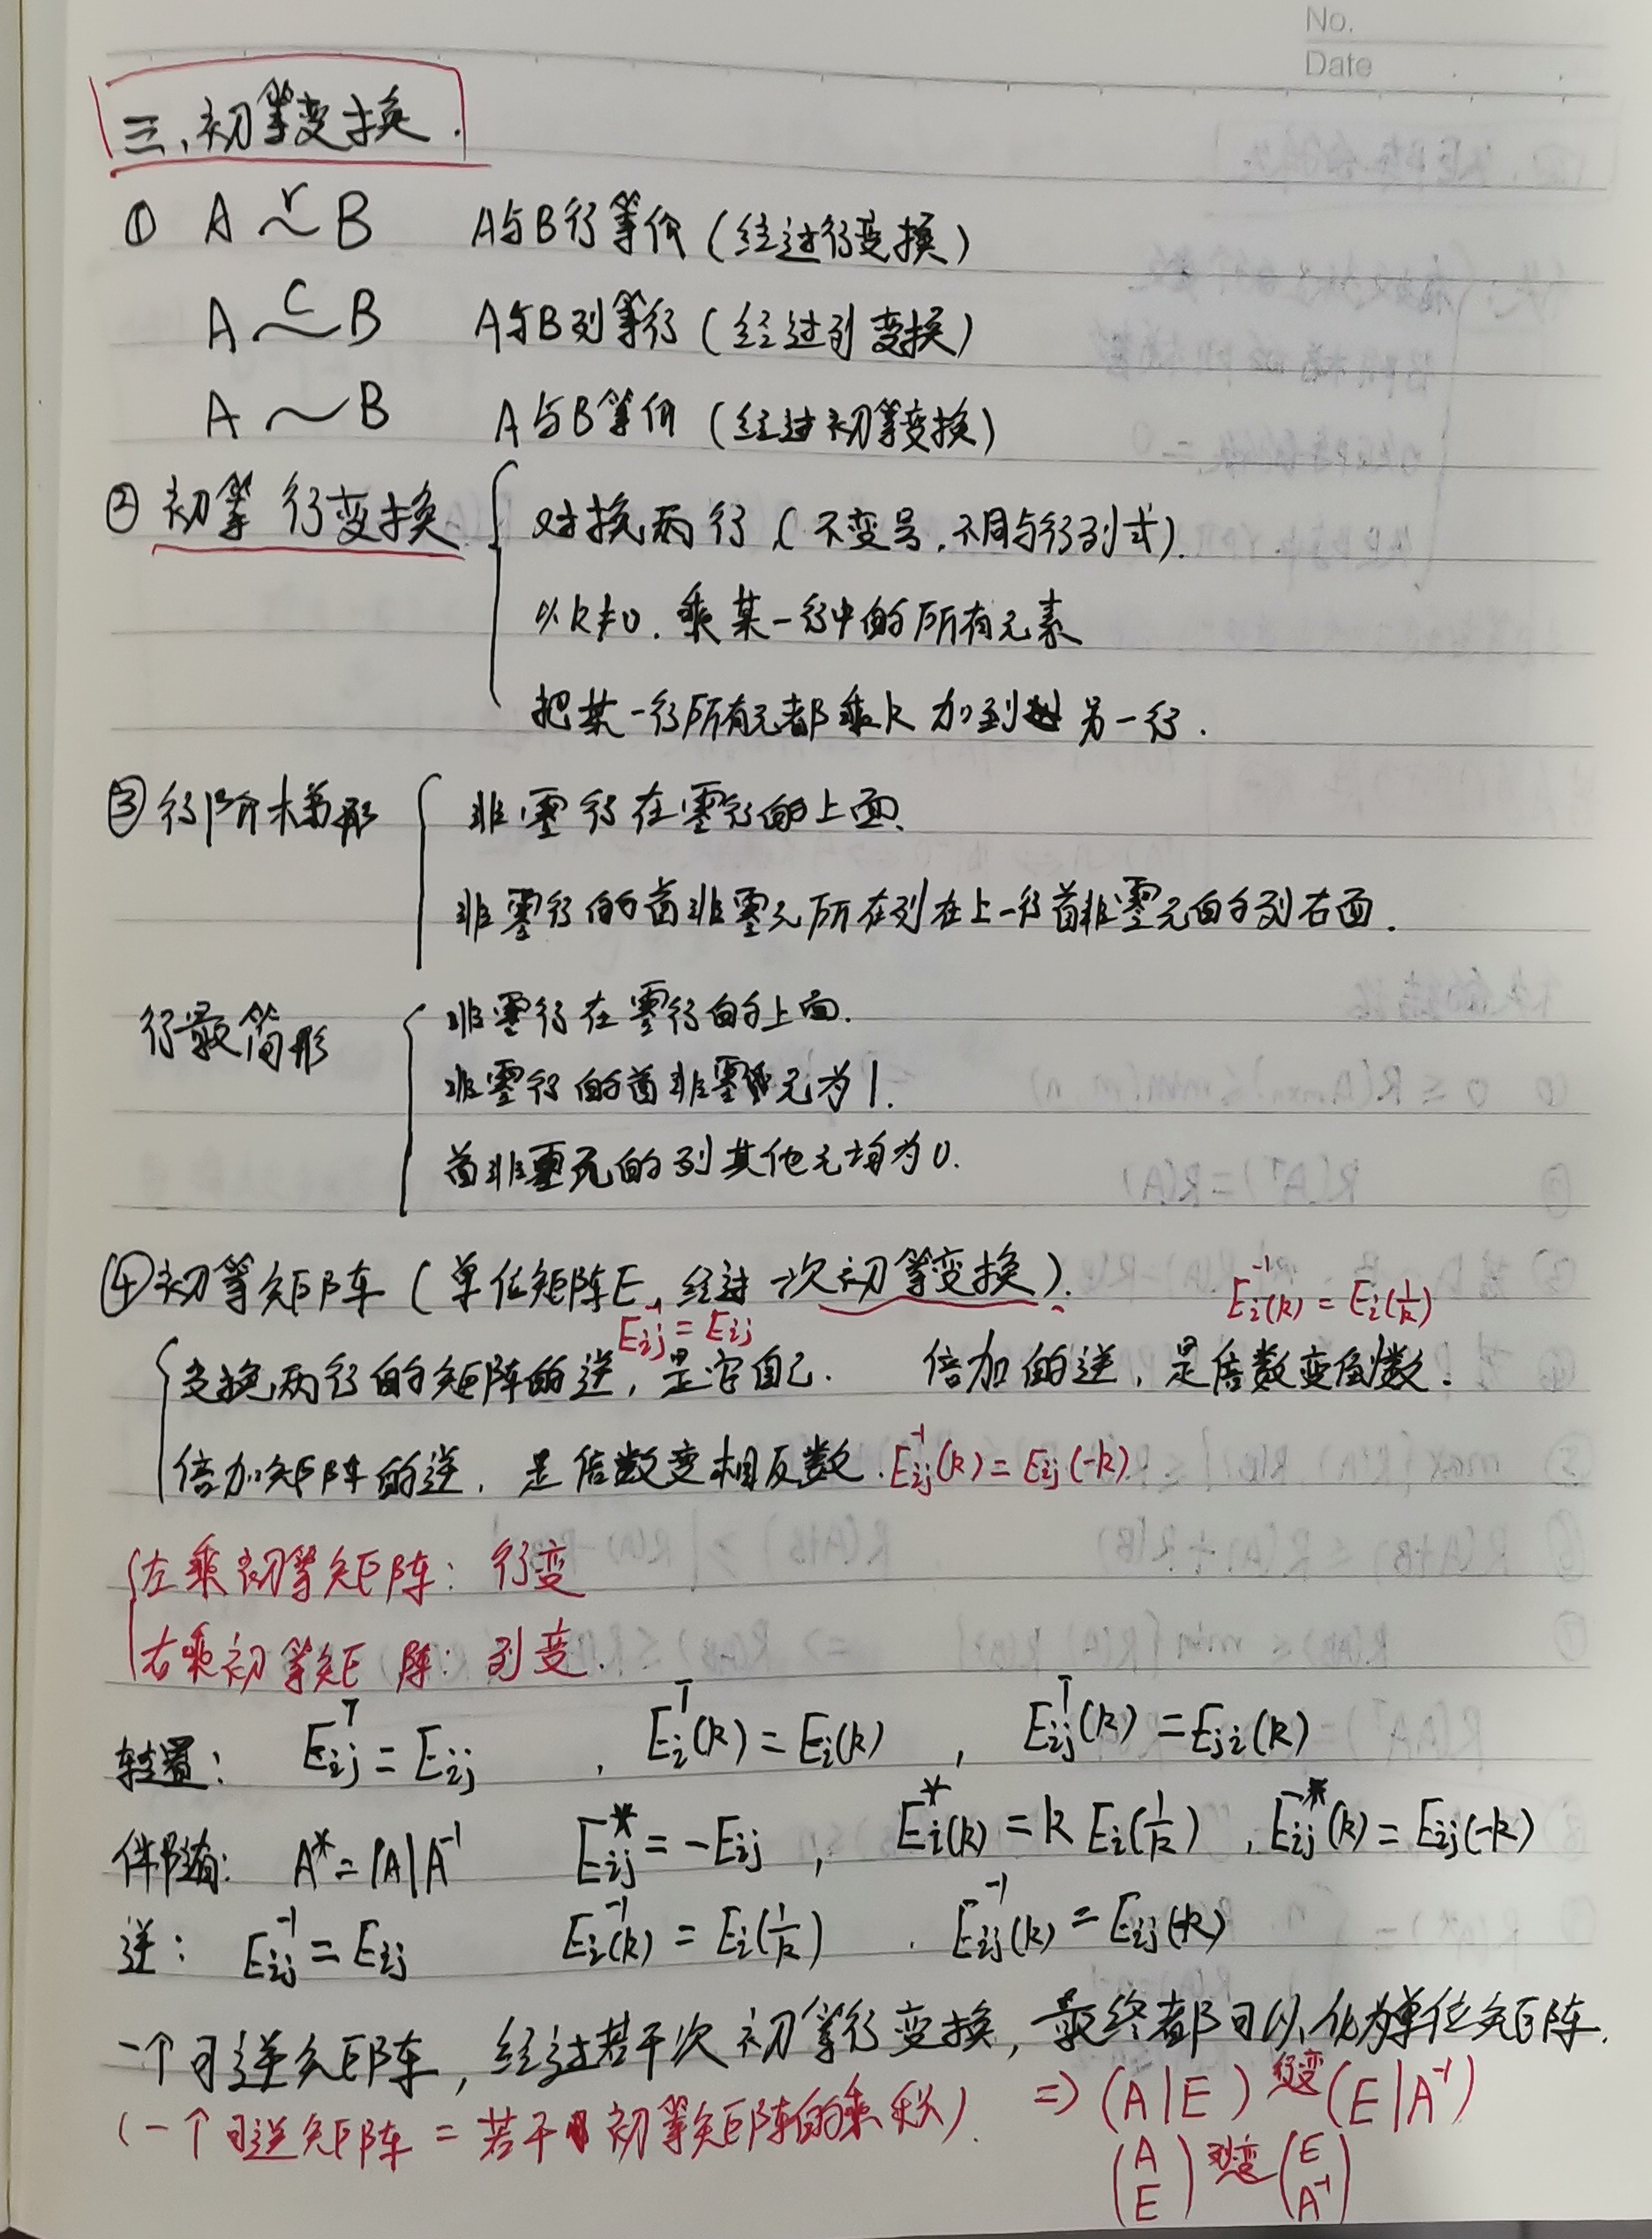 No.
Date
三、初等变换.
① A r~ B A与B行等价(经过行变换)
A c~ B A与B列等行(经过列变换)
A ~ B A与B等价(经过初等变换)
② 初等行变换 { 对换两行(不变号,不同与行列式).
以k≠0.乘某一行中的所有元素
把某一行所有元都乘k加到 另一行.
③行阶梯形 { 非零行在零行的上面.
非零行的首非零元所在列在上一行首非零元的列右面.
行最简形 { 非零行在零行的上面.
非零行的首非零元为1.
首非零元的列其他元均为0.
④初等矩阵(单位矩阵E,经过一次初等变换). Ei⁻¹(k) = Ei(1/k)
Eij⁻¹ = Eij
交换两行的矩阵的逆,是它自己. 倍加的逆,是倍数变倒数.
倍加矩阵的逆,是倍数变相反数. Eij⁻¹(k) = Eij(-k)
左乘初等矩阵: 行变
右乘初等矩阵: 列变.
转置: Eijᵀ = Eij , Eiᵀ(k) = Ei(k) , Eijᵀ(k) = Eji(k)
伴随: A* = |A|A⁻¹ Eij* = -Eij , Ei*(k) = k Ei(1/k) , Eij*(k) = Eij(-k)
逆: Eij⁻¹ = Eij Ei⁻¹(k) = Ei(1/k) . Eij⁻¹(k) = Eij(-k)
一个可逆矩阵,经过若干次初等行变换,最终都可以化为单位矩阵.
(一个可逆矩阵 = 若干 初等矩阵的乘积). ⇒ (A|E) 行变 (E|A⁻¹)
(A E) 列变 (E A⁻¹)